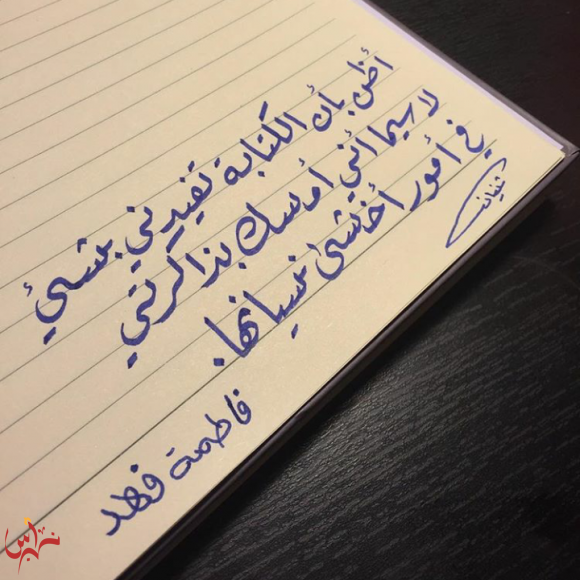 أظن بأن الكتابة تفيدني بشيئ
لا سيما أنني أمسك بذاكرتي
في أمور أخشى نسيانها.
فاطمة فهد